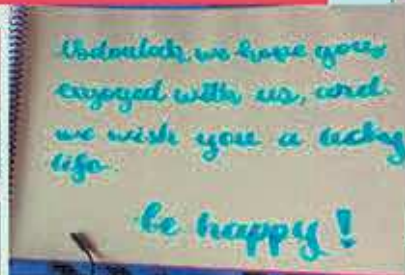 Abdoulah, we hope you
enjoyed with us, and
we wish you a lucky
life.
be happy!